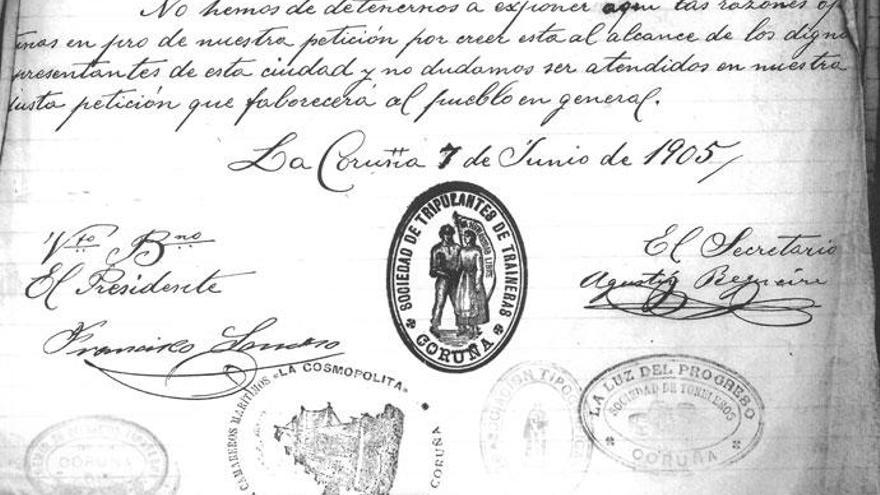 No hemos de detenernos a exponer aqui las razones
en pro de nuestra petición por creer esta al alcance de los
de esta ciudad y no dudamos ser atendidos en nuestra
petición que faborecerá al pueblo en general.
La Coruña 7 de Junio de 1905
Vto Bno
El Presidente
Francisco
El Secretario
Agustín
SOCIEDAD DE TRIPULANTES DE TRAINERAS
CORUÑA
CAMAREROS MARITIMOS «LA COSMOPOLITA»
CORUÑA
LA LUZ DEL PROGRESO
SOCIEDAD DE TONELEROS
CORUÑA
CORUÑA